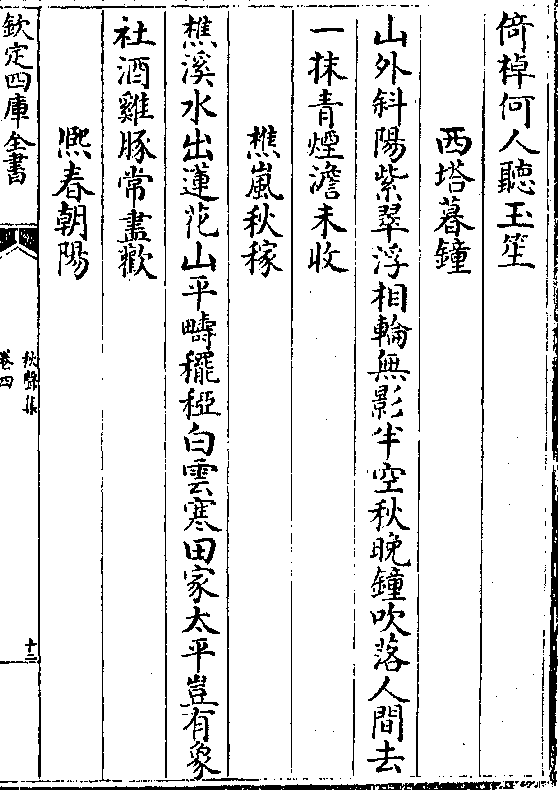 倚棹何人聽玉笙
西塔暮鐘
山外斜陽紫翠浮相輪無影半空秋晚鐘吹落人間去
一抹青煙澹未收
樵嵐秋稼
樵溪水出蓮花山平疇䆉稏白雲寒田家太平豈有象
社酒雞豚常盡歡
熈春朝陽
欽定四庫全書
秋聲集
卷四
十二